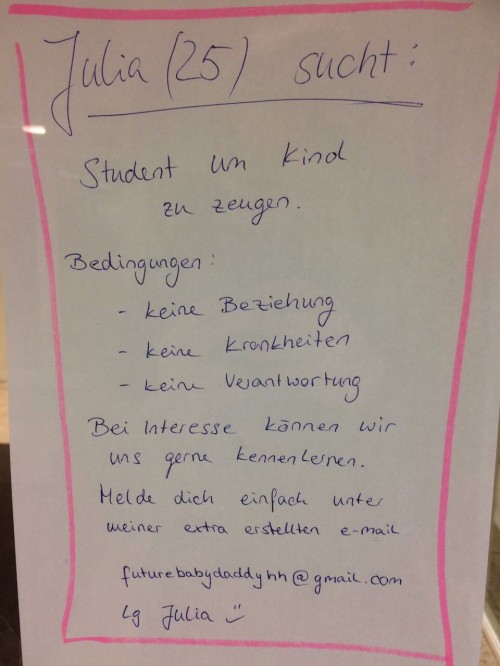 Julia (25) sucht:
Student um Kind
zu zeugen.
Bedingungen:
- keine Beziehung
- keine Krankheiten
- keine Verantwortung
Bei Interesse können wir
uns gerne kennenlernen.
Melde dich einfach unter
meiner extra erstellten e-mail
futurebabydaddyhh@gmail.com
Lg Julia :)